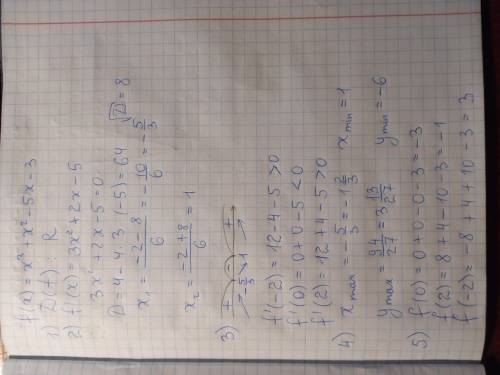 f(x) = x³ + x² - 5x - 3
1) D(f) : R
2) f'(x) = 3x² + 2x - 5
3x² + 2x - 5 = 0
D = 4 - 4·3·(-5) = 64 √D = 8
x₁ = (-2 - 8)/6 = -10/6 = -5/3
x₂ = (-2 + 8)/6 = 1
3) + - +
-5/3 1
f'(-2) = 12 - 4 - 5 > 0
f'(0) = 0 + 0 - 5 < 0
f'(2) = 12 + 4 - 5 > 0
4) x max = -5/3 = -1 2/3 x min = 1
y max = 94/27 = 3 13/27 y min = -6
5) f(0) = 0 + 0 - 0 - 3 = -3
f(2) = 8 + 4 - 10 - 3 = -1
f(-2) = -8 + 4 + 10 - 3 = 3